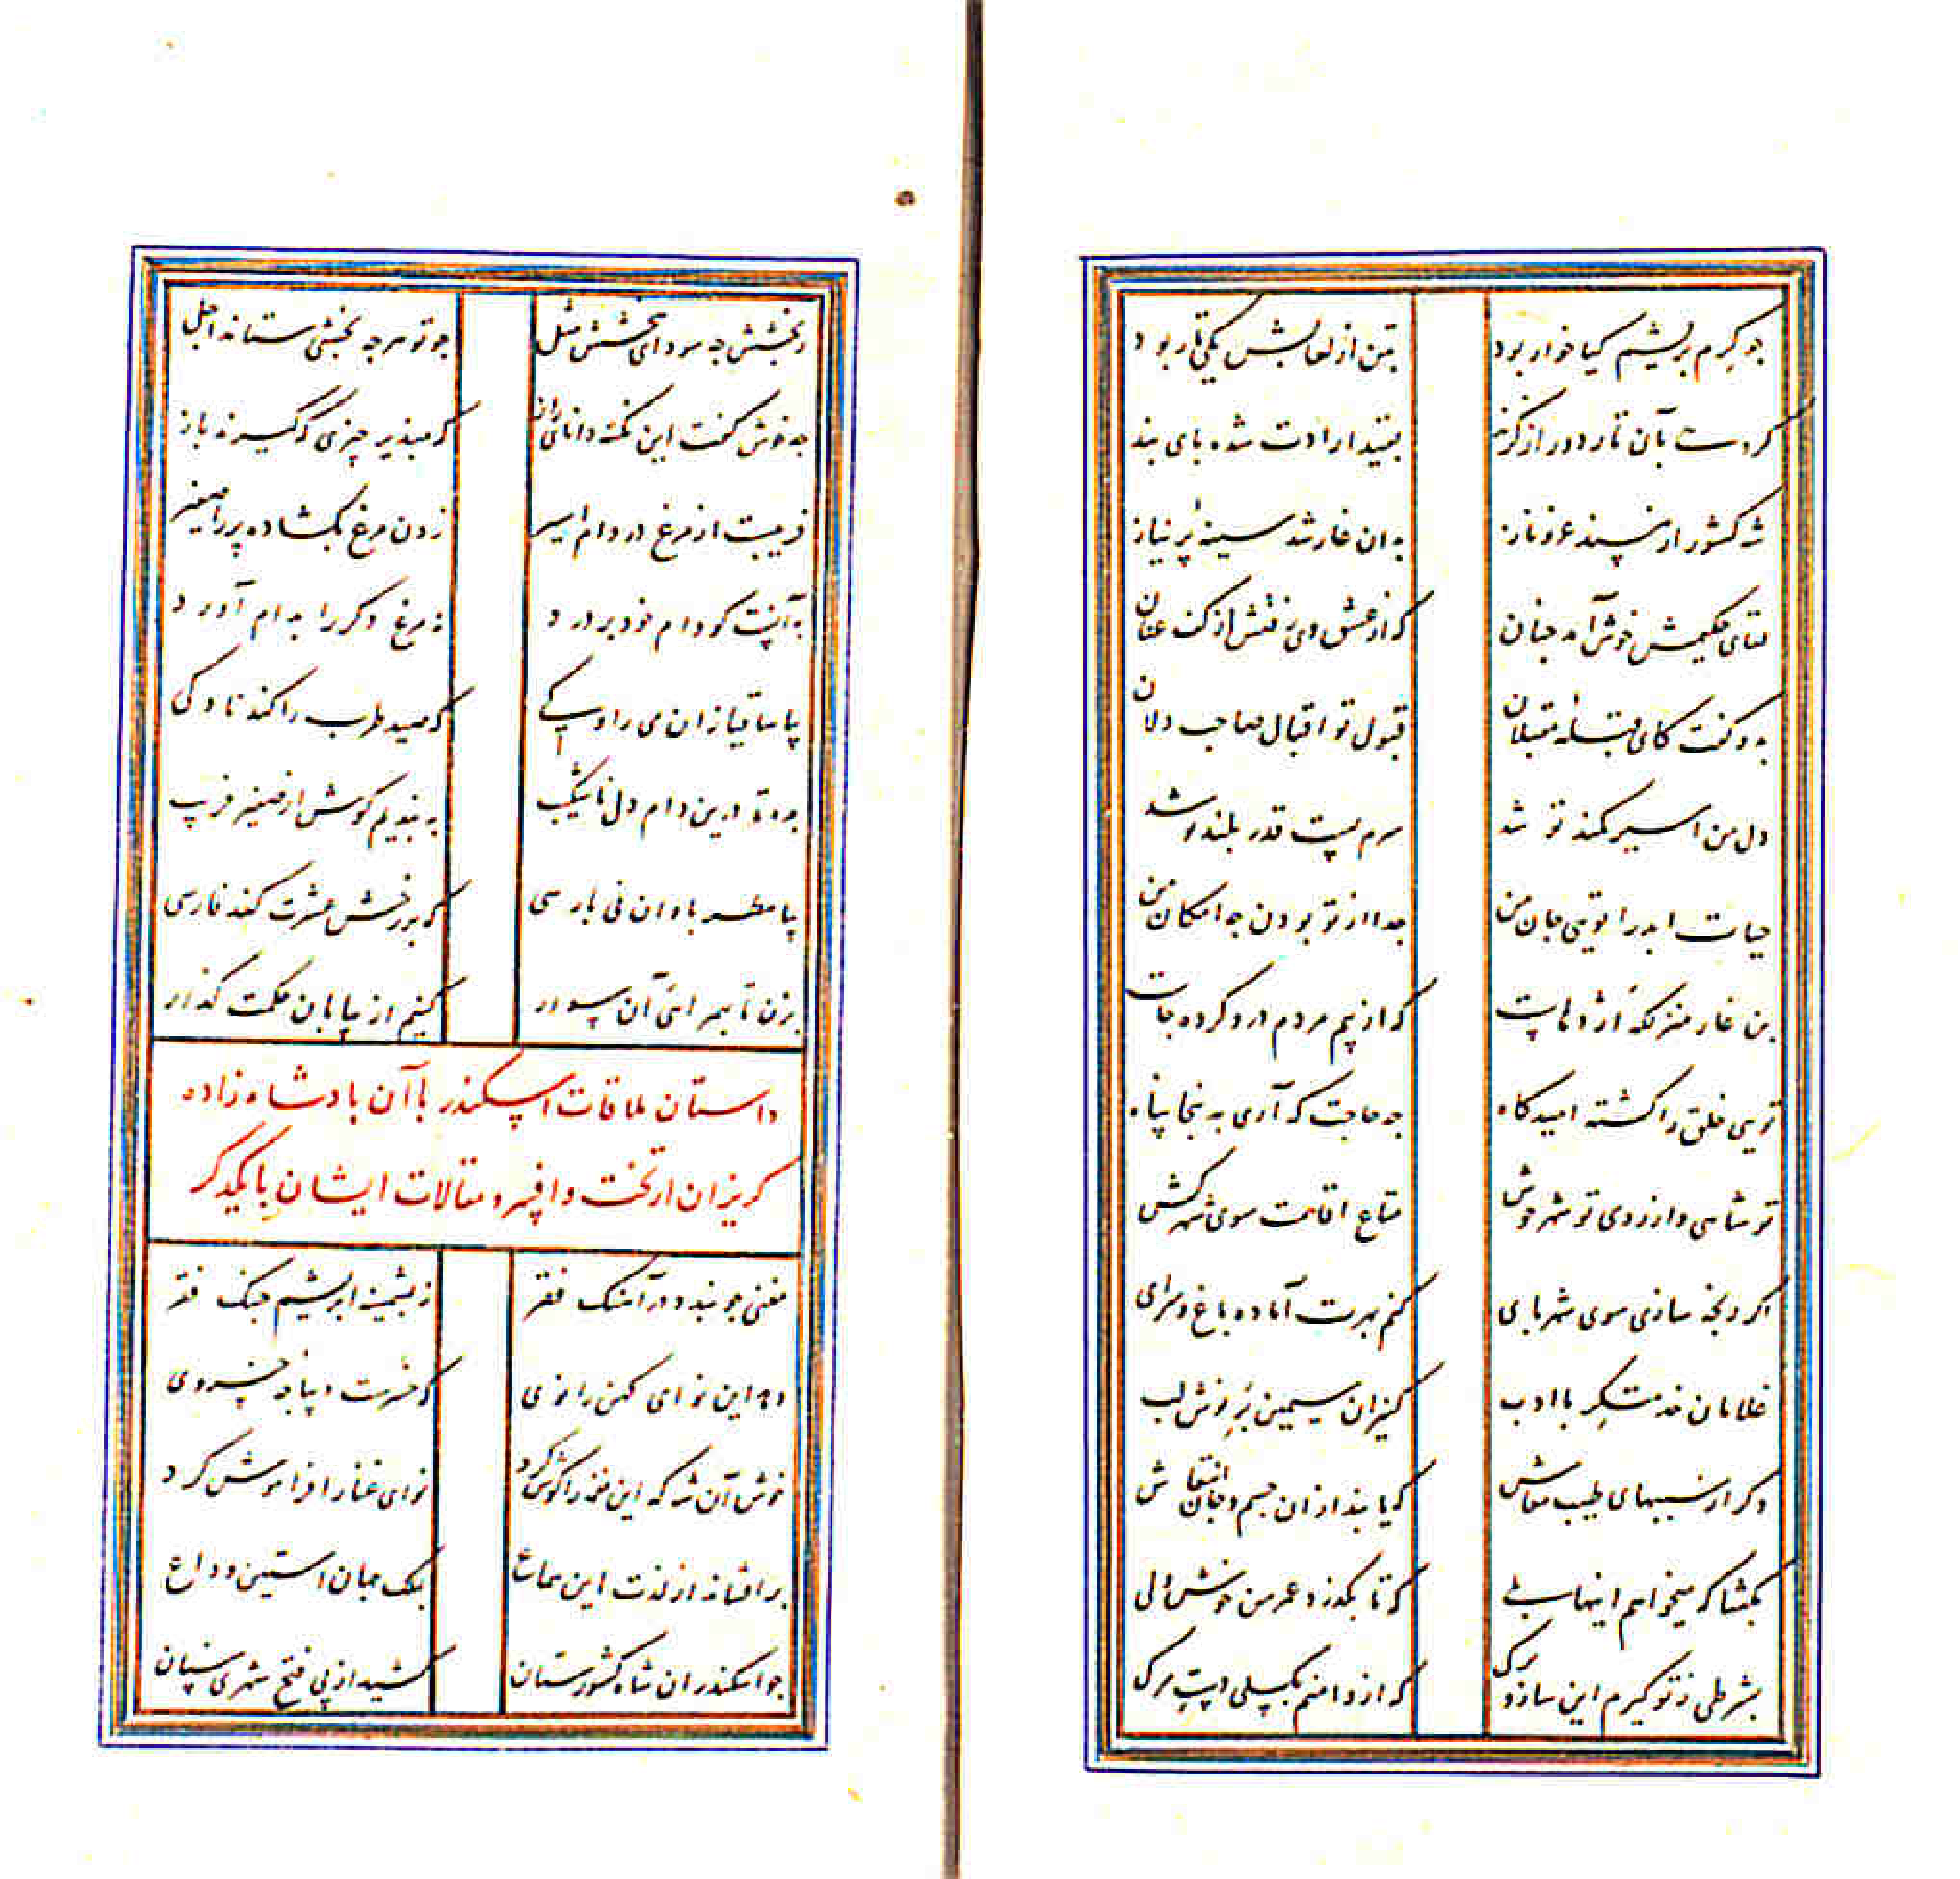 جو کرم بریشم کیا خوار بود
بتن از لعابش یکی تار بود
کزوست بآن تار دور از کزند
بقید ارادت شده بای بند
شه کشور از مسند عز و ناز
بدان غار شد سینه پر نیاز
لقای حکیمش خوش آمد جنان
که از عشق وی رفتش از کف عنان
بدو کفت کای قبله مقبلان
قبول تو اقبال صاحب دلان
دل من اسیر کمند تو شد
سرم بست قدر بلند تو شد
حیات ابد را تویی جان من
جدا از تو بودن جه امکان من
بن غار منزلکه اژدهاست
که از بیم مردم درو کرده جاست
تویی خلق را کشته امیدکاه
جه حاجت که آری به بنجا پناه
تو شاهی و از روی تو شهر خوش
متاع اقامت سوی شهر کش
اکر رنجه سازی سوی شهر بای
کنم بهرت آماده باغ و سرای
غلامان خدمتکر با ادب
کنیزان سیمین بر نوش لب
دکر از سببهای طیب معاش
که یابند ازان جسم و جان انتعاش
بکفتا که میخواهم اینها بلی
که تا بکذرد عمر من خوش ولی
بشرطی ز تو کیرم این ساز و برک
که از دامنم بکسلی دست مرک
ز بخشش جه سود ای ببخشش مثل
جو تو هر جه بخشی ستاند اجل
جه خوش کفت این نکته دانای راز
که مپذیر چیزی که کیرند باز
فریبست از مرغ در دام اسیر
زدن مرغ بکشاده پر را صفیر
به آنست کو دام خود بر درد
نه مرغ دکر را بدام آورد
بیا ساقیا زان می راوکی
که صید طرب را کند ناوکی
بده تا درین دام دل ناشکیب
به بندیم کوش از صفیر فریب
بیا مطربا وان نی بارسی
که بر رخش عشرت کند فارسی
بزن تا بهمراهی آن سوار
کنیم از بیابان حکمت کذار
داستان ملاقات اسکندر با آن بادشاه زاده
کریزان از تخت و افسر و مقالات ایشان با یکدکر
مغنی جو بندد در آهنک فقر
ز بشمینه ابریشم جنک فقر
دهد این نوای کهن را نوی
که خرست دیباجه خسروی
خوش آن شه که این نغمه را کوش کرد
نوای غنا را فراموش کرد
بر افشاند از لذت این سماع
بملک جهان استین وداع
جو اسکندر ان شاه کشورستان
کشید از پی فتح شهری سپان